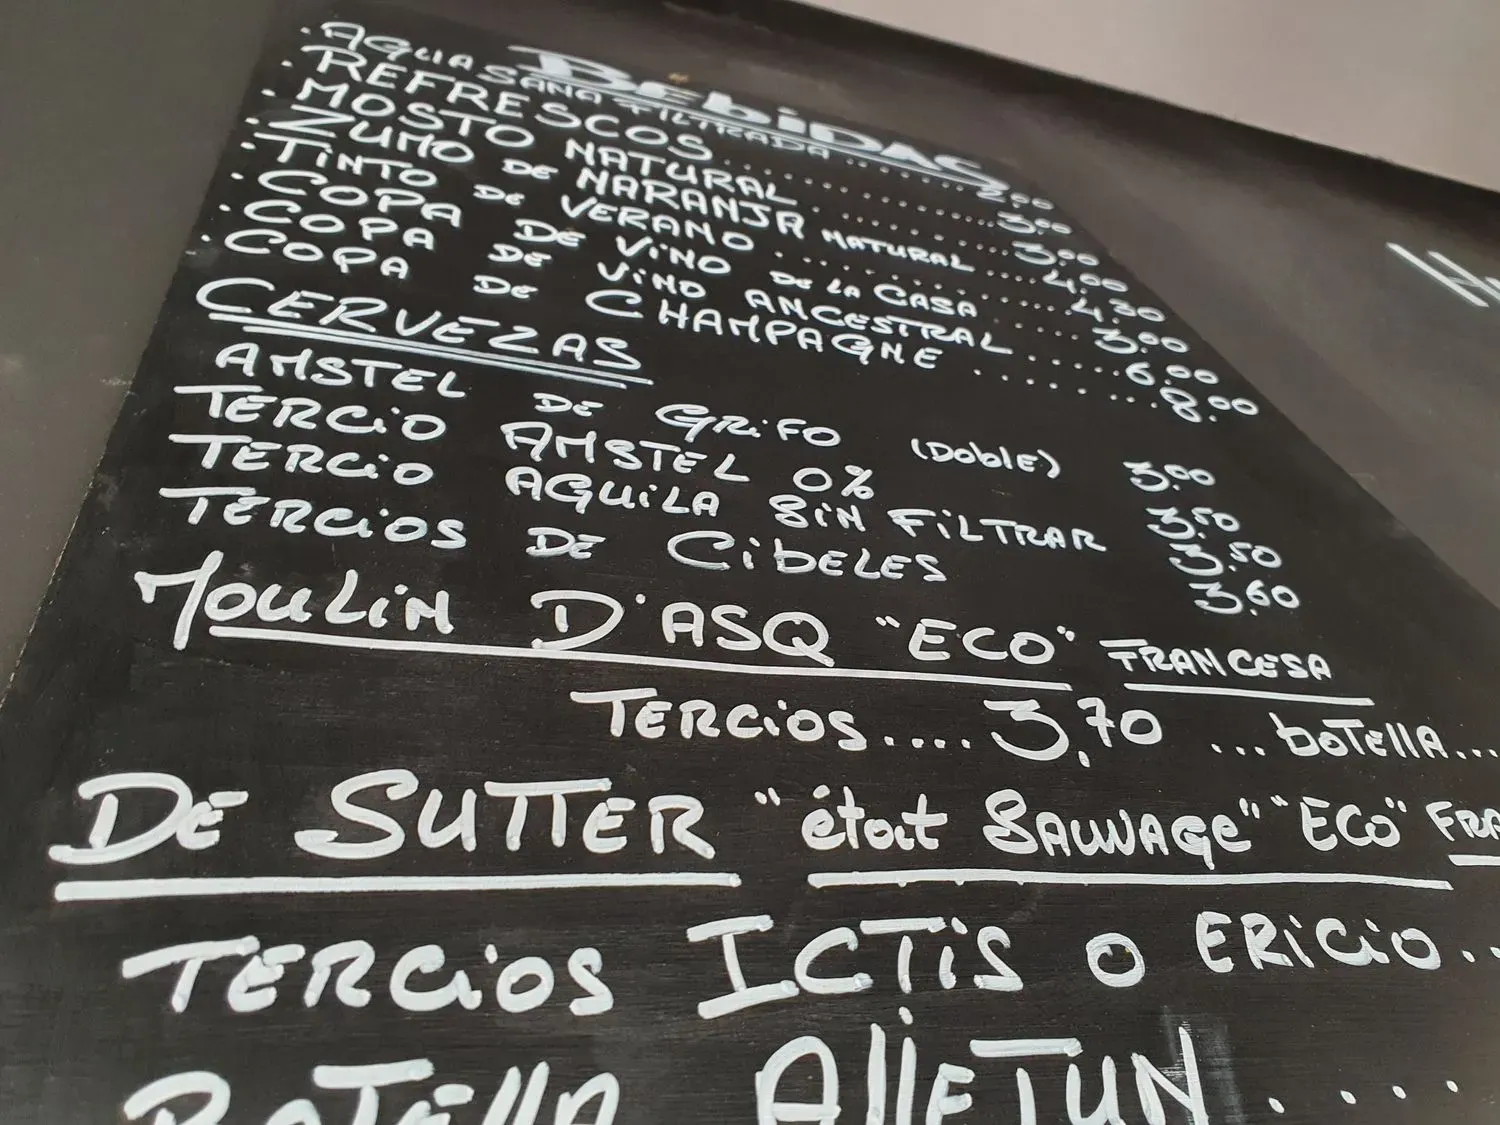 BEbiDAS
· AGUA SANA FILTRADA ........... 2.00
· REFRESCOS .............. 3.00
· MOSTO NATURAL ............ 3.00
· ZUMO DE NARANJA NATURAL ... 4.00
· TiNTO DE VERANO ............ 4.50
· COPA DE ViNO DE LA CASA ...... 3.00
· COPA DE ViNO ANCESTRAL ...... 6.00
· COPA DE CHAMPAGNE ......... 8.00
CERVEZAS
AMSTEL DE GRiFO (DoblE) 3.00
TERCiO AMSTEL 0% 3.50
TERCiO AGUiLA SiN FiLTRAR 3.50
TERCiOS DE CibELES 3.60
MOULiN D'ASQ "ECO" FRANCESA
TERCiOS.... 3,70 ... boTEllA...
DE SUTTER "étoit SAUVAGE" "ECO" FRA
TERCiOS ICTiS O ERiCiO..
BOTEllA AllETUN ....